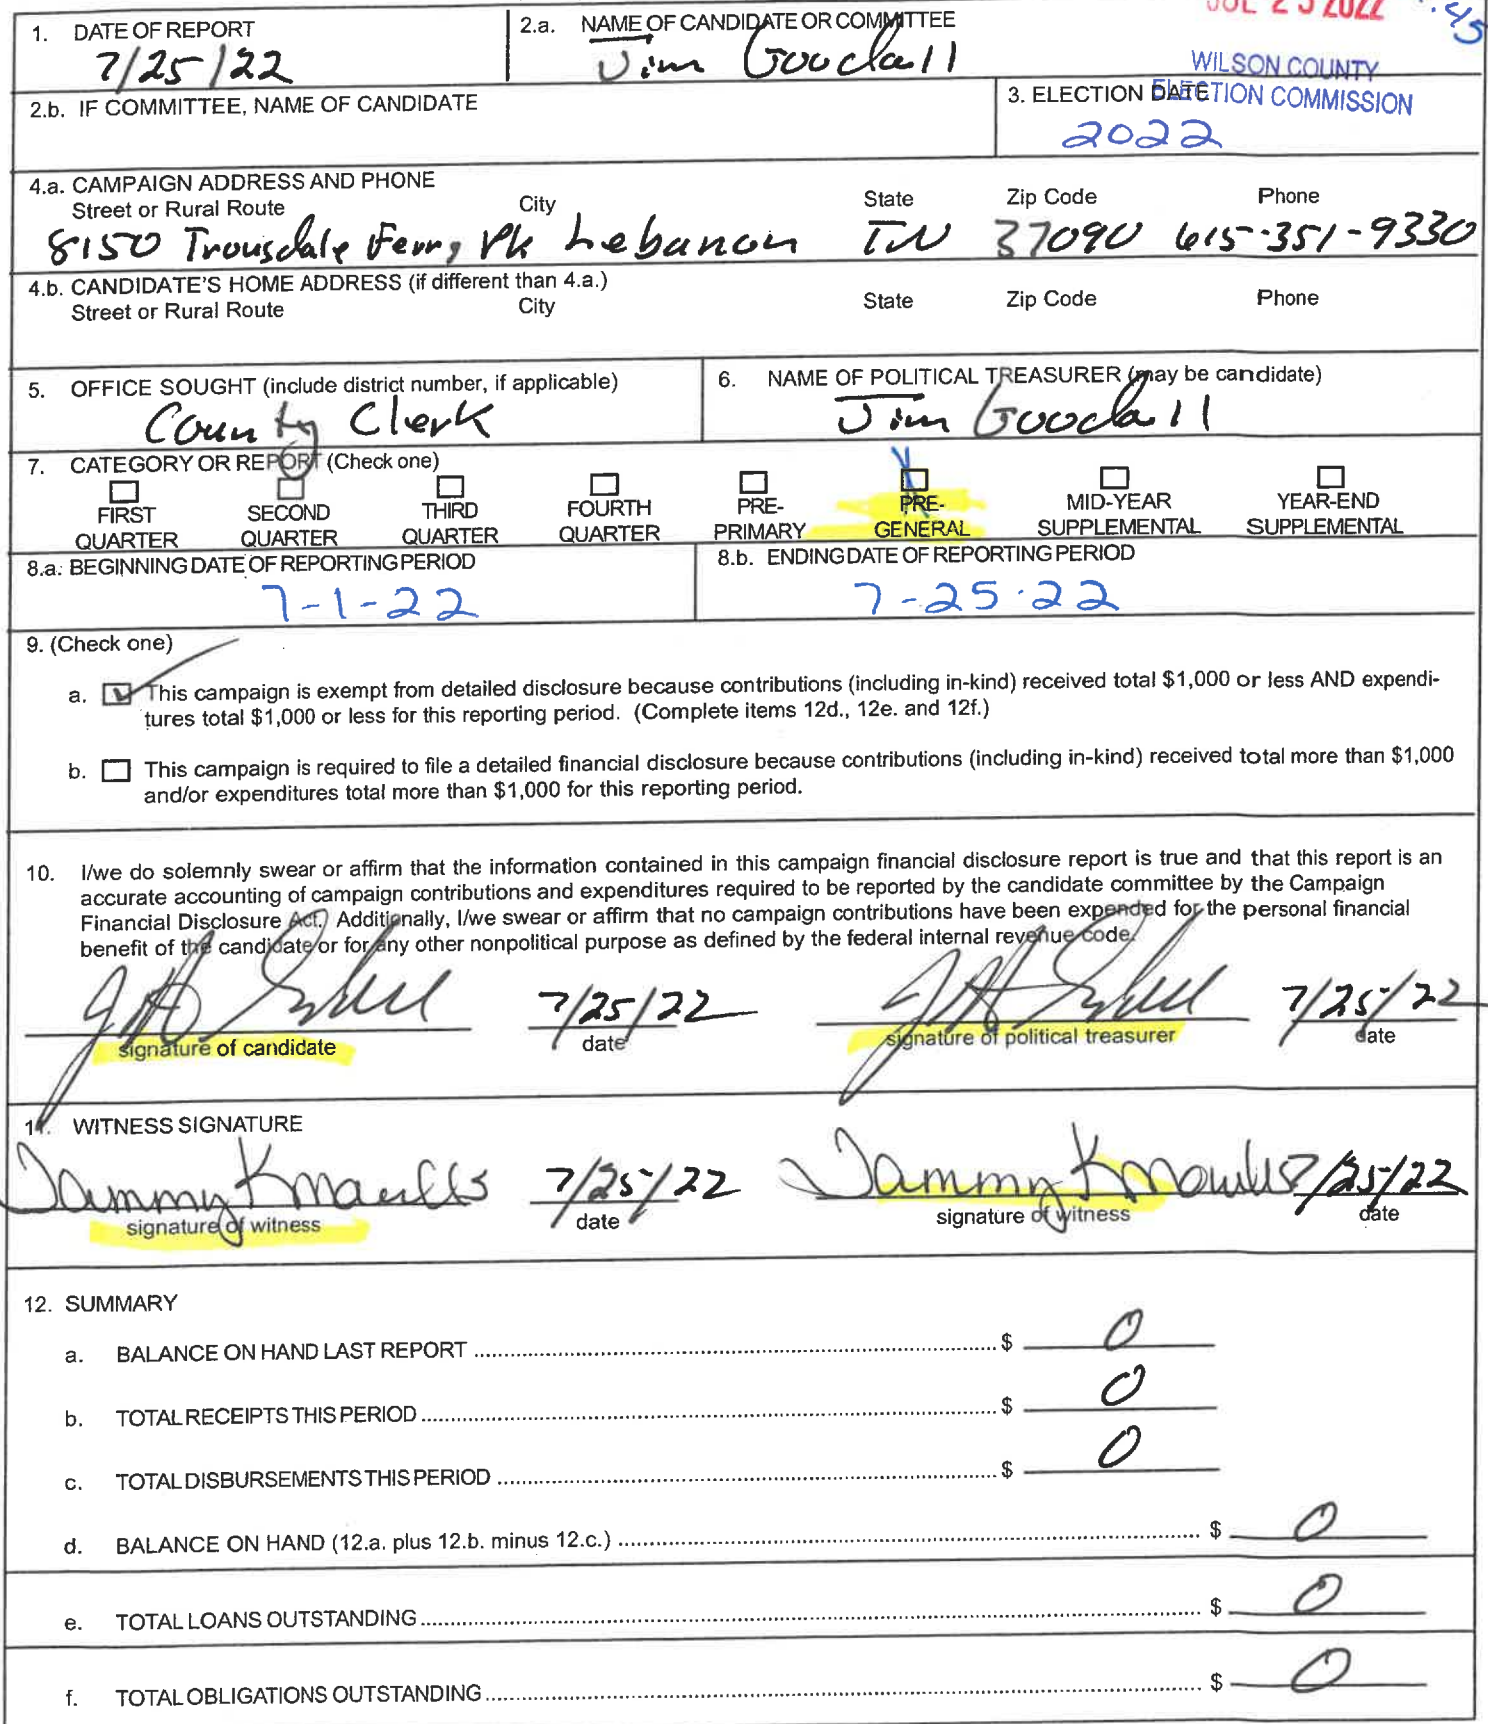 JUL 25 2022
:45
1. DATE OF REPORT
7/25/22
2.a. NAME OF CANDIDATE OR COMMITTEE
Jim Goodall
WILSON COUNTY
ELECTION COMMISSION
2.b. IF COMMITTEE, NAME OF CANDIDATE
3. ELECTION DATE
2022
4.a. CAMPAIGN ADDRESS AND PHONE
Street or Rural Route City State Zip Code Phone
8150 Trousdale Ferry Pk Lebanon TN 37090 615-351-9330
4.b. CANDIDATE'S HOME ADDRESS (if different than 4.a.)
Street or Rural Route City State Zip Code Phone
5. OFFICE SOUGHT (include district number, if applicable)
County Clerk
6. NAME OF POLITICAL TREASURER (may be candidate)
Jim Goodall
7. CATEGORY OR REPORT (Check one)
FIRST QUARTER
SECOND QUARTER
THIRD QUARTER
FOURTH QUARTER
PRE-PRIMARY
PRE-GENERAL
MID-YEAR SUPPLEMENTAL
YEAR-END SUPPLEMENTAL
8.a. BEGINNING DATE OF REPORTING PERIOD
7-1-22
8.b. ENDING DATE OF REPORTING PERIOD
7-25-22
9. (Check one)
a. This campaign is exempt from detailed disclosure because contributions (including in-kind) received total $1,000 or less AND expendi-
tures total $1,000 or less for this reporting period. (Complete items 12d., 12e. and 12f.)
b. This campaign is required to file a detailed financial disclosure because contributions (including in-kind) received total more than $1,000
and/or expenditures total more than $1,000 for this reporting period.
10. I/we do solemnly swear or affirm that the information contained in this campaign financial disclosure report is true and that this report is an
accurate accounting of campaign contributions and expenditures required to be reported by the candidate committee by the Campaign
Financial Disclosure Act. Additionally, I/we swear or affirm that no campaign contributions have been expended for the personal financial
benefit of the candidate or for any other nonpolitical purpose as defined by the federal internal revenue code.
7/25/22 7/25/22
signature of candidate date signature of political treasurer date
11. WITNESS SIGNATURE
Tammy 7/25/22 Tammy 7/25/22
signature of witness date signature of witness date
12. SUMMARY
a. BALANCE ON HAND LAST REPORT $ 0
b. TOTAL RECEIPTS THIS PERIOD $ 0
c. TOTAL DISBURSEMENTS THIS PERIOD $ 0
d. BALANCE ON HAND (12.a. plus 12.b. minus 12.c.) $ 0
e. TOTAL LOANS OUTSTANDING $ 0
f. TOTAL OBLIGATIONS OUTSTANDING $ 0